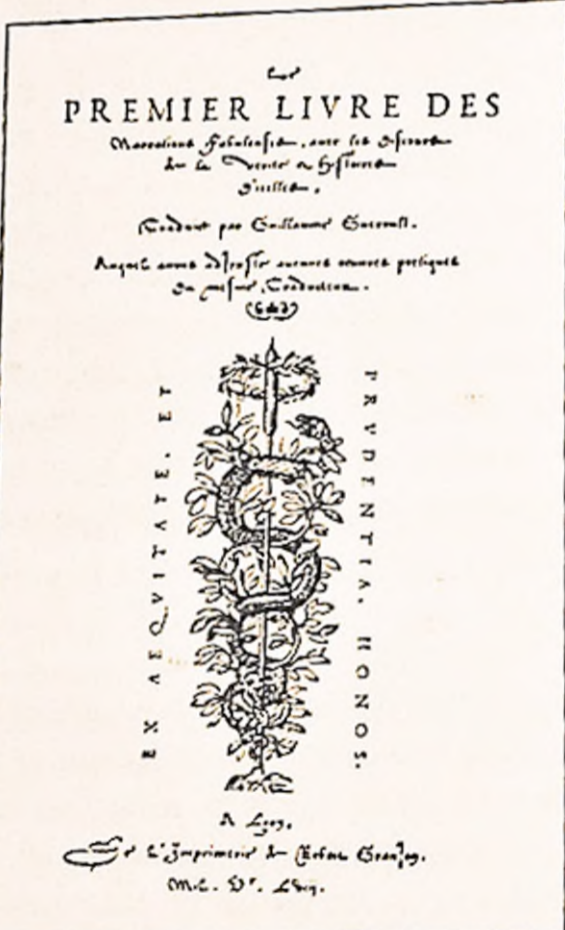 Le
PREMIER LIVRE DES
Narrations Fabuleuses, auec les discours
de la verite & hystoires
d'icelles.
Traduit par Guillaume Gueroult.
Auquel auons adiousté aucunes œuures poëtiques
du mesme Traducteur.
EX AEQVITATE, ET
PRVDENTIA, HONOS.
A Lyon,
De l'Imprimerie de Robert Granjon.